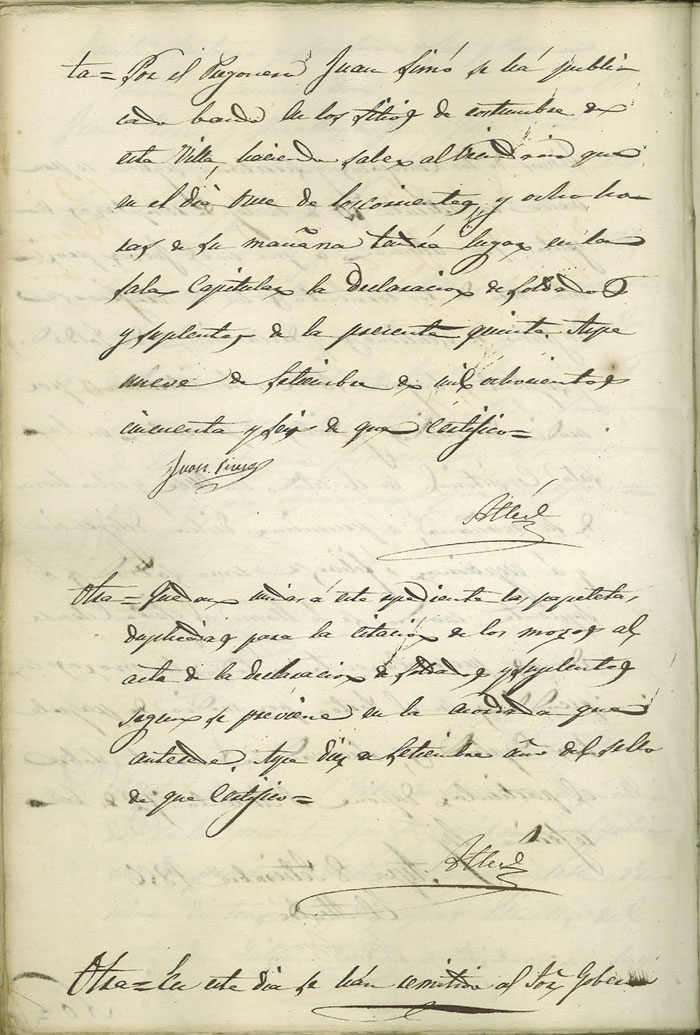 ta = Por el Pregonero Juan Simó se há publi
cado bando en los sitios de costumbre de
esta Villa, haciendo saber al Vecindario que
en el dia once de los corrientes, y ocho ho
ras de su mañana tendrá lugar en la
sala Capitular la declaracion de soldados
y suplentes de la presente quinta. Aspe
nueve de Setiembre de mil ochocientos
cincuenta y seis de que Certifico =
Juan
Otra = Quedan unidas á este espediente las papeletas
duplicadas para la citacion de los mozos al
acta de la declaracion de soldados y suplentes
segun se previene en la acordada que
antecede. Aspe diez de Setiembre año del sello
de que Certifico =
Otra = En este dia se hán remitido al Sor. Gober